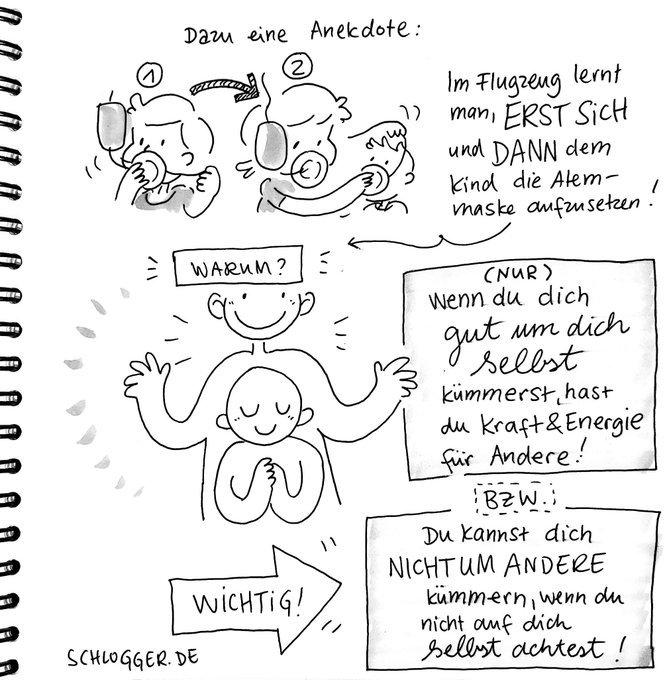 Dazu eine Anekdote:
1
2
Im Flugzeug lernt
man, ERST SICH
und DANN dem
Kind die Atem-
maske aufzusetzen!
WARUM?
(NUR)
Wenn du dich
gut um dich
selbst
kümmerst, hast
du Kraft & Energie
für Andere!
BZW.
Du kannst dich
NICHT UM ANDERE
kümmern, wenn du
nicht auf dich
selbst achtest!
WICHTIG!
SCHLOGGER.DE